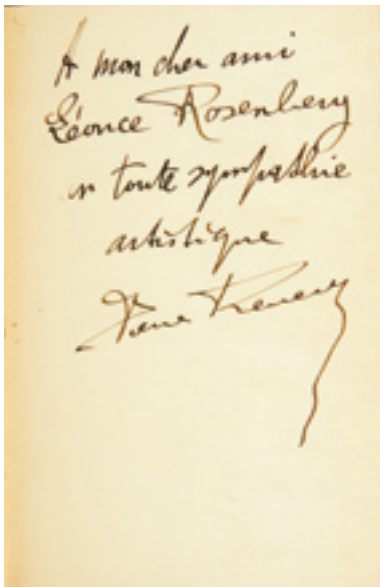 A mon cher ami
Léonce Rosenberg
en toute sympathie
artistique
Pierre